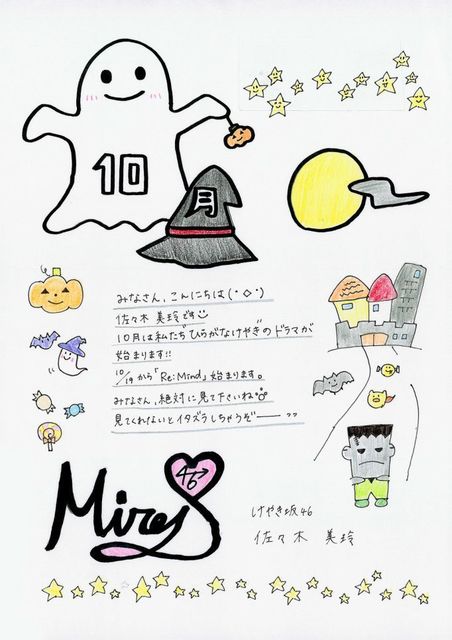 10
月
みなさん、こんにちは(・◇・)
佐々木 美玲です
10月は私たち"ひらがなけやき"のドラマが
始まります!!
10/19から「Re:Mind」始まります。
みなさん、絶対に見て下さいね
見てくれないとイタズラしちゃうぞ〜
46
Mirei
けやき坂46
佐々木 美玲